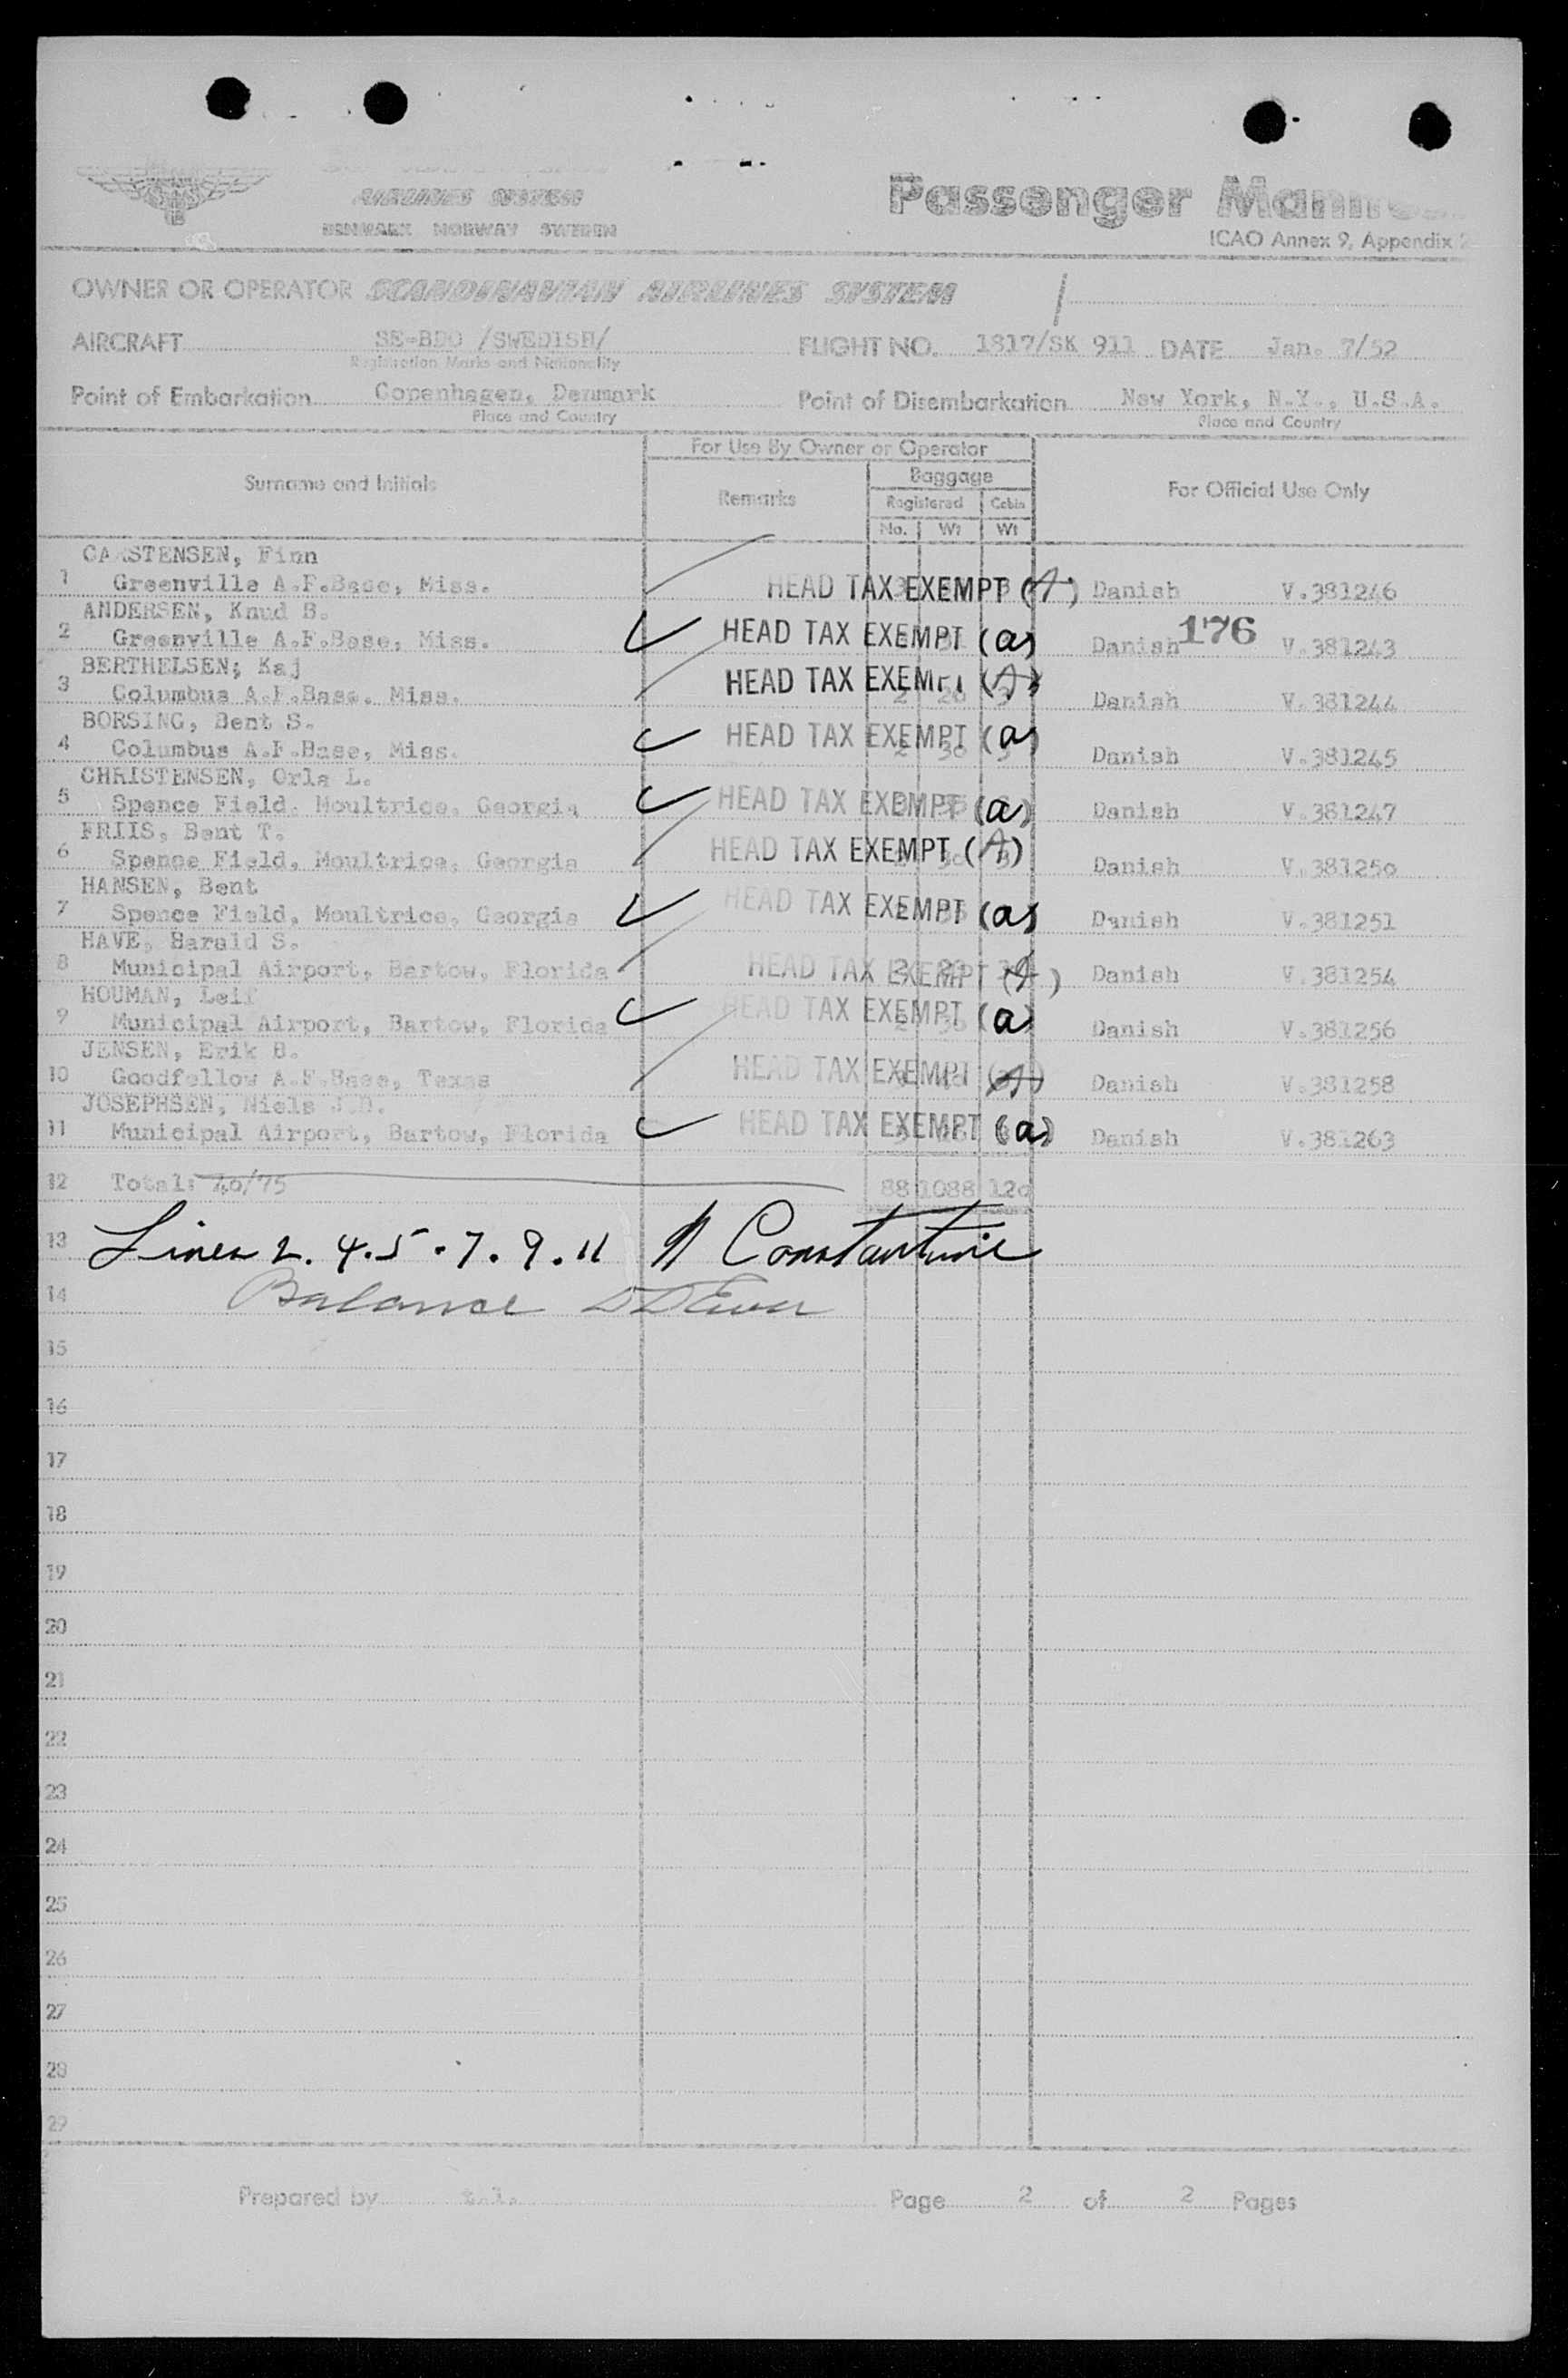 AIRLINES SYSTEM
DENMARK NORWAY SWEDEN
Passenger
ICAO Annex 9, Appendix 2
OWNER OR OPERATOR SCANDINAVIAN AIRLINES SYSTEM
AIRCRAFT SE-BDO /SWEDISH/ FLIGHT NO. 1817/SK 911 DATE Jan. 7/52
Registration Marks and Nationality
Point of Embarkation Copenhagen, Denmark Point of Disembarkation New York, N.Y., U.S.A.
Place and Country Place and Country
For Use By Owner or Operator
Surname and Initials Remarks Baggage For Official Use Only
Registered Cabin
No. Wt Wt
CARSTENSEN, Finn
1 Greenville A.F.Base, Miss. HEAD TAX EXEMPT (A) Danish V.381246
ANDERSEN, Knud B.
2 Greenville A.F.Base, Miss. HEAD TAX EXEMPT (a) Danish 176 V.381243
BERTHELSEN; Kaj
3 Columbus A.F.Base, Miss. HEAD TAX EXEMPT (A) 2 20 3 Danish V.381244
BORSING, Bent S.
4 Columbus A.F.Base, Miss. HEAD TAX EXEMPT (a) 2 30 3 Danish V.381245
CHRISTENSEN, Orla L.
5 Spence Field, Moultrice, Georgia HEAD TAX EXEMPT (a) Danish V.381247
FRIIS, Bent T.
6 Spence Field, Moultrice, Georgia HEAD TAX EXEMPT (A) Danish V.381250
HANSEN, Bent
7 Spence Field, Moultrice, Georgia HEAD TAX EXEMPT (a) Danish V.381251
HAVE, Harald S.
8 Municipal Airport, Bartow, Florida HEAD TAX EXEMPT (A) Danish V.381254
HOUMAN, Leif
9 Municipal Airport, Bartow, Florida HEAD TAX EXEMPT (a) Danish V.381256
JENSEN, Erik B.
10 Goodfellow A.F.Base, Texas HEAD TAX EXEMPT (A) Danish V.381258
JOSEPHSEN, Niels J.D.
11 Municipal Airport, Bartow, Florida HEAD TAX EXEMPT (a) Danish V.381263
12 Total: 40/75 88 1088 120
13 Lines 2. 4. 5. 7. 9. 11 N Constantine
14 Balance
15
16
17
18
19
20
21
22
23
24
25
26
27
28
29
Prepared by t.l. Page 2 of 2 Pages